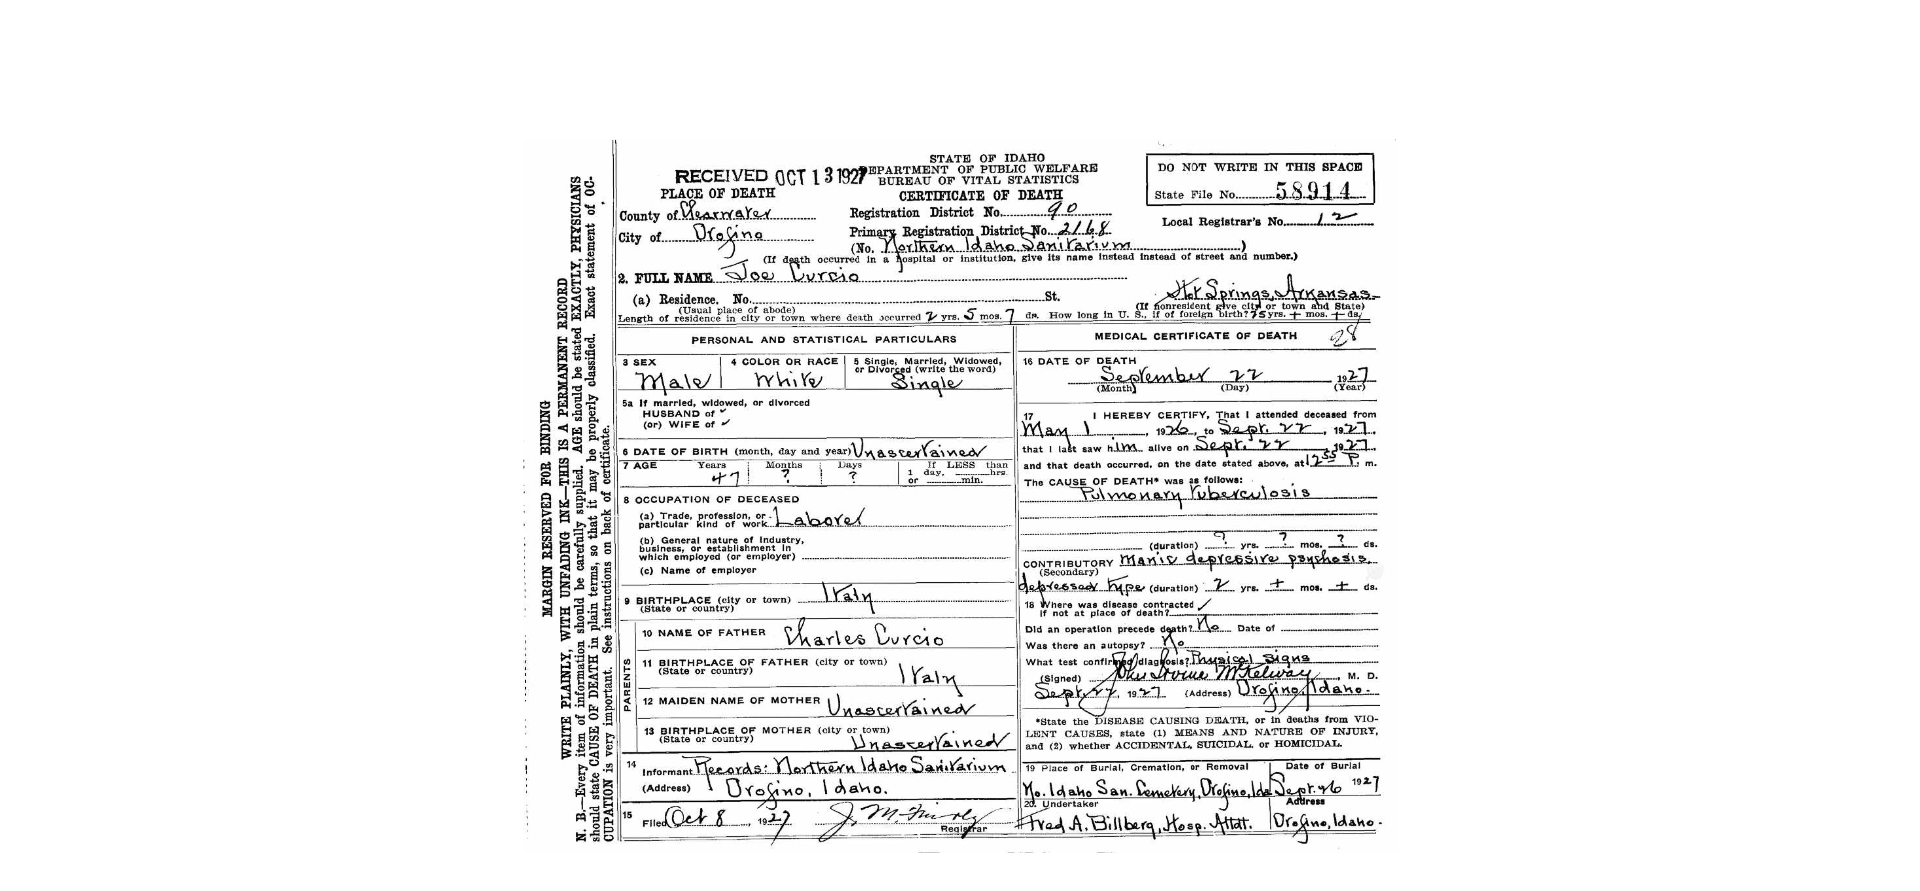 MARGIN RESERVED FOR BINDING
WRITE PLAINLY, WITH UNFADING INK—THIS IS A PERMANENT RECORD
N. B.—Every item of information should be carefully supplied. AGE should be stated EXACTLY, PHYSICIANS
should state CAUSE OF DEATH in plain terms, so that it may be properly classified. Exact statement of OC-
CUPATION is very important. See instructions on back of certificate.
RECEIVED OCT 13 1927
STATE OF IDAHO
DEPARTMENT OF PUBLIC WELFARE
BUREAU OF VITAL STATISTICS
CERTIFICATE OF DEATH
DO NOT WRITE IN THIS SPACE
State File No. 58914
PLACE OF DEATH
County of Clearwater
City of Orofino
Registration District No. 90
Primary Registration District No. 2168
Local Registrar's No. 12
(No. Northern Idaho Sanitarium)
(If death occurred in a hospital or institution, give its name instead instead of street and number.)
2. FULL NAME Joe Curcio
(a) Residence. No. St. Hot Springs, Arkansas
(Usual place of abode) (If nonresident give city or town and State)
Length of residence in city or town where death occurred 2 yrs. 5 mos. 7 ds. How long in U. S., if of foreign birth? 25 yrs. + mos. + ds.
PERSONAL AND STATISTICAL PARTICULARS
3 SEX
Male
4 COLOR OR RACE
White
5 Single, Married, Widowed,
or Divorced (write the word)
Single
5a If married, widowed, or divorced
HUSBAND of
(or) WIFE of
6 DATE OF BIRTH (month, day and year) Unascertained
7 AGE Years Months Days If LESS than
47 ? ? 1 day, hrs.
or min.
8 OCCUPATION OF DECEASED
(a) Trade, profession, or
particular kind of work Laborer
(b) General nature of Industry,
business, or establishment in
which employed (or employer)
(c) Name of employer
9 BIRTHPLACE (city or town) Italy
(State or country)
PARENTS
10 NAME OF FATHER Charles Curcio
11 BIRTHPLACE OF FATHER (city or town)
(State or country) Italy
12 MAIDEN NAME OF MOTHER Unascertained
13 BIRTHPLACE OF MOTHER (city or town)
(State or country) Unascertained
14 Informant Records: Northern Idaho Sanitarium
(Address) Orofino, Idaho.
15 Filed Oct 8, 1927
Registrar
MEDICAL CERTIFICATE OF DEATH 28
16 DATE OF DEATH
September 22 1927
(Month) (Day) (Year)
17 I HEREBY CERTIFY, That I attended deceased from
May 1, 1926, to Sept. 22, 1927,
that I last saw him alive on Sept. 22 1927
and that death occurred, on the date stated above, at 12 55 P. m.
The CAUSE OF DEATH* was as follows:
Pulmonary tuberculosis
(duration) ? yrs. ? mos. ? ds.
CONTRIBUTORY Manic depressive psychosis,
(Secondary)
depressed type (duration) 2 yrs. + mos. + ds.
18 Where was disease contracted
if not at place of death?
Did an operation precede death? No Date of
Was there an autopsy? No
What test confirmed diagnosis? Physical signs
(Signed) John Irvine McKelway, M. D.
Sept. 22, 1927 (Address) Orofino, Idaho.
*State the DISEASE CAUSING DEATH, or in deaths from VIO-
LENT CAUSES, state (1) MEANS AND NATURE OF INJURY,
and (2) whether ACCIDENTAL, SUICIDAL, or HOMICIDAL.
19 Place of Burial, Cremation, or Removal Date of Burial
No. Idaho San. Cemetery, Orofino, Ida Sept. 26 1927
20. Undertaker Address
Fred A. Billberg, Hosp. Attdt. Orofino, Idaho.